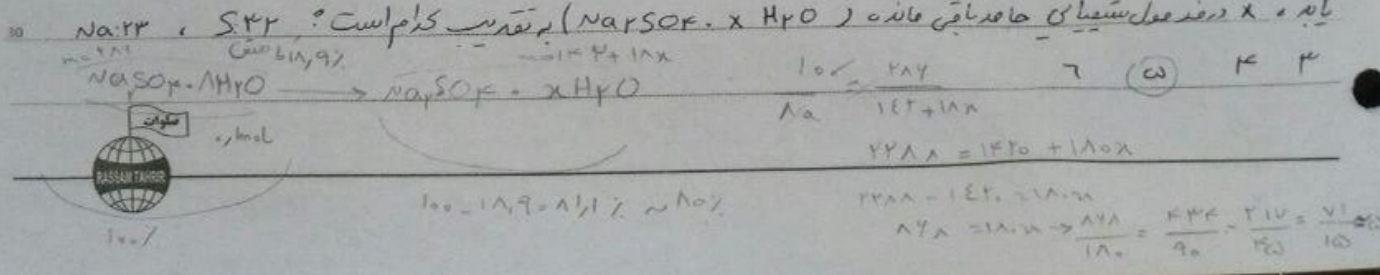 یابد، x در فرمول شیمیایی جامد باقی مانده (Na۲SO۴. x H۲O) به تقریب کدام است؟ S:۳۲ ، Na:۲۳
۳ ۴ ۵ ۶
۱۸,۹٪ کاهش
۱۴۲+۱۸x
Na۲SO۴.۸H۲O → Na۲SO۴. xH۲O
۱۰۰/۸۰ = ۲۸۶/۱۴۲+۱۸x
۰,۱mol
RASSAM TAHRIR
۲۲۸۸ = ۱۴۲۰ + ۱۸۰x
۱۰۰-۱۸,۹=۸۱,۱٪ ~ ۸۰٪
۲۲۸۸ - ۱۴۲۰ = ۱۸۰x
۸۶۸ = ۱۸۰x → ۸۶۸/۱۸۰ = ۴۳۴/۹۰ = ۲۱۷/۴۵ = ۷۱/۱۵
۱۰۰٪